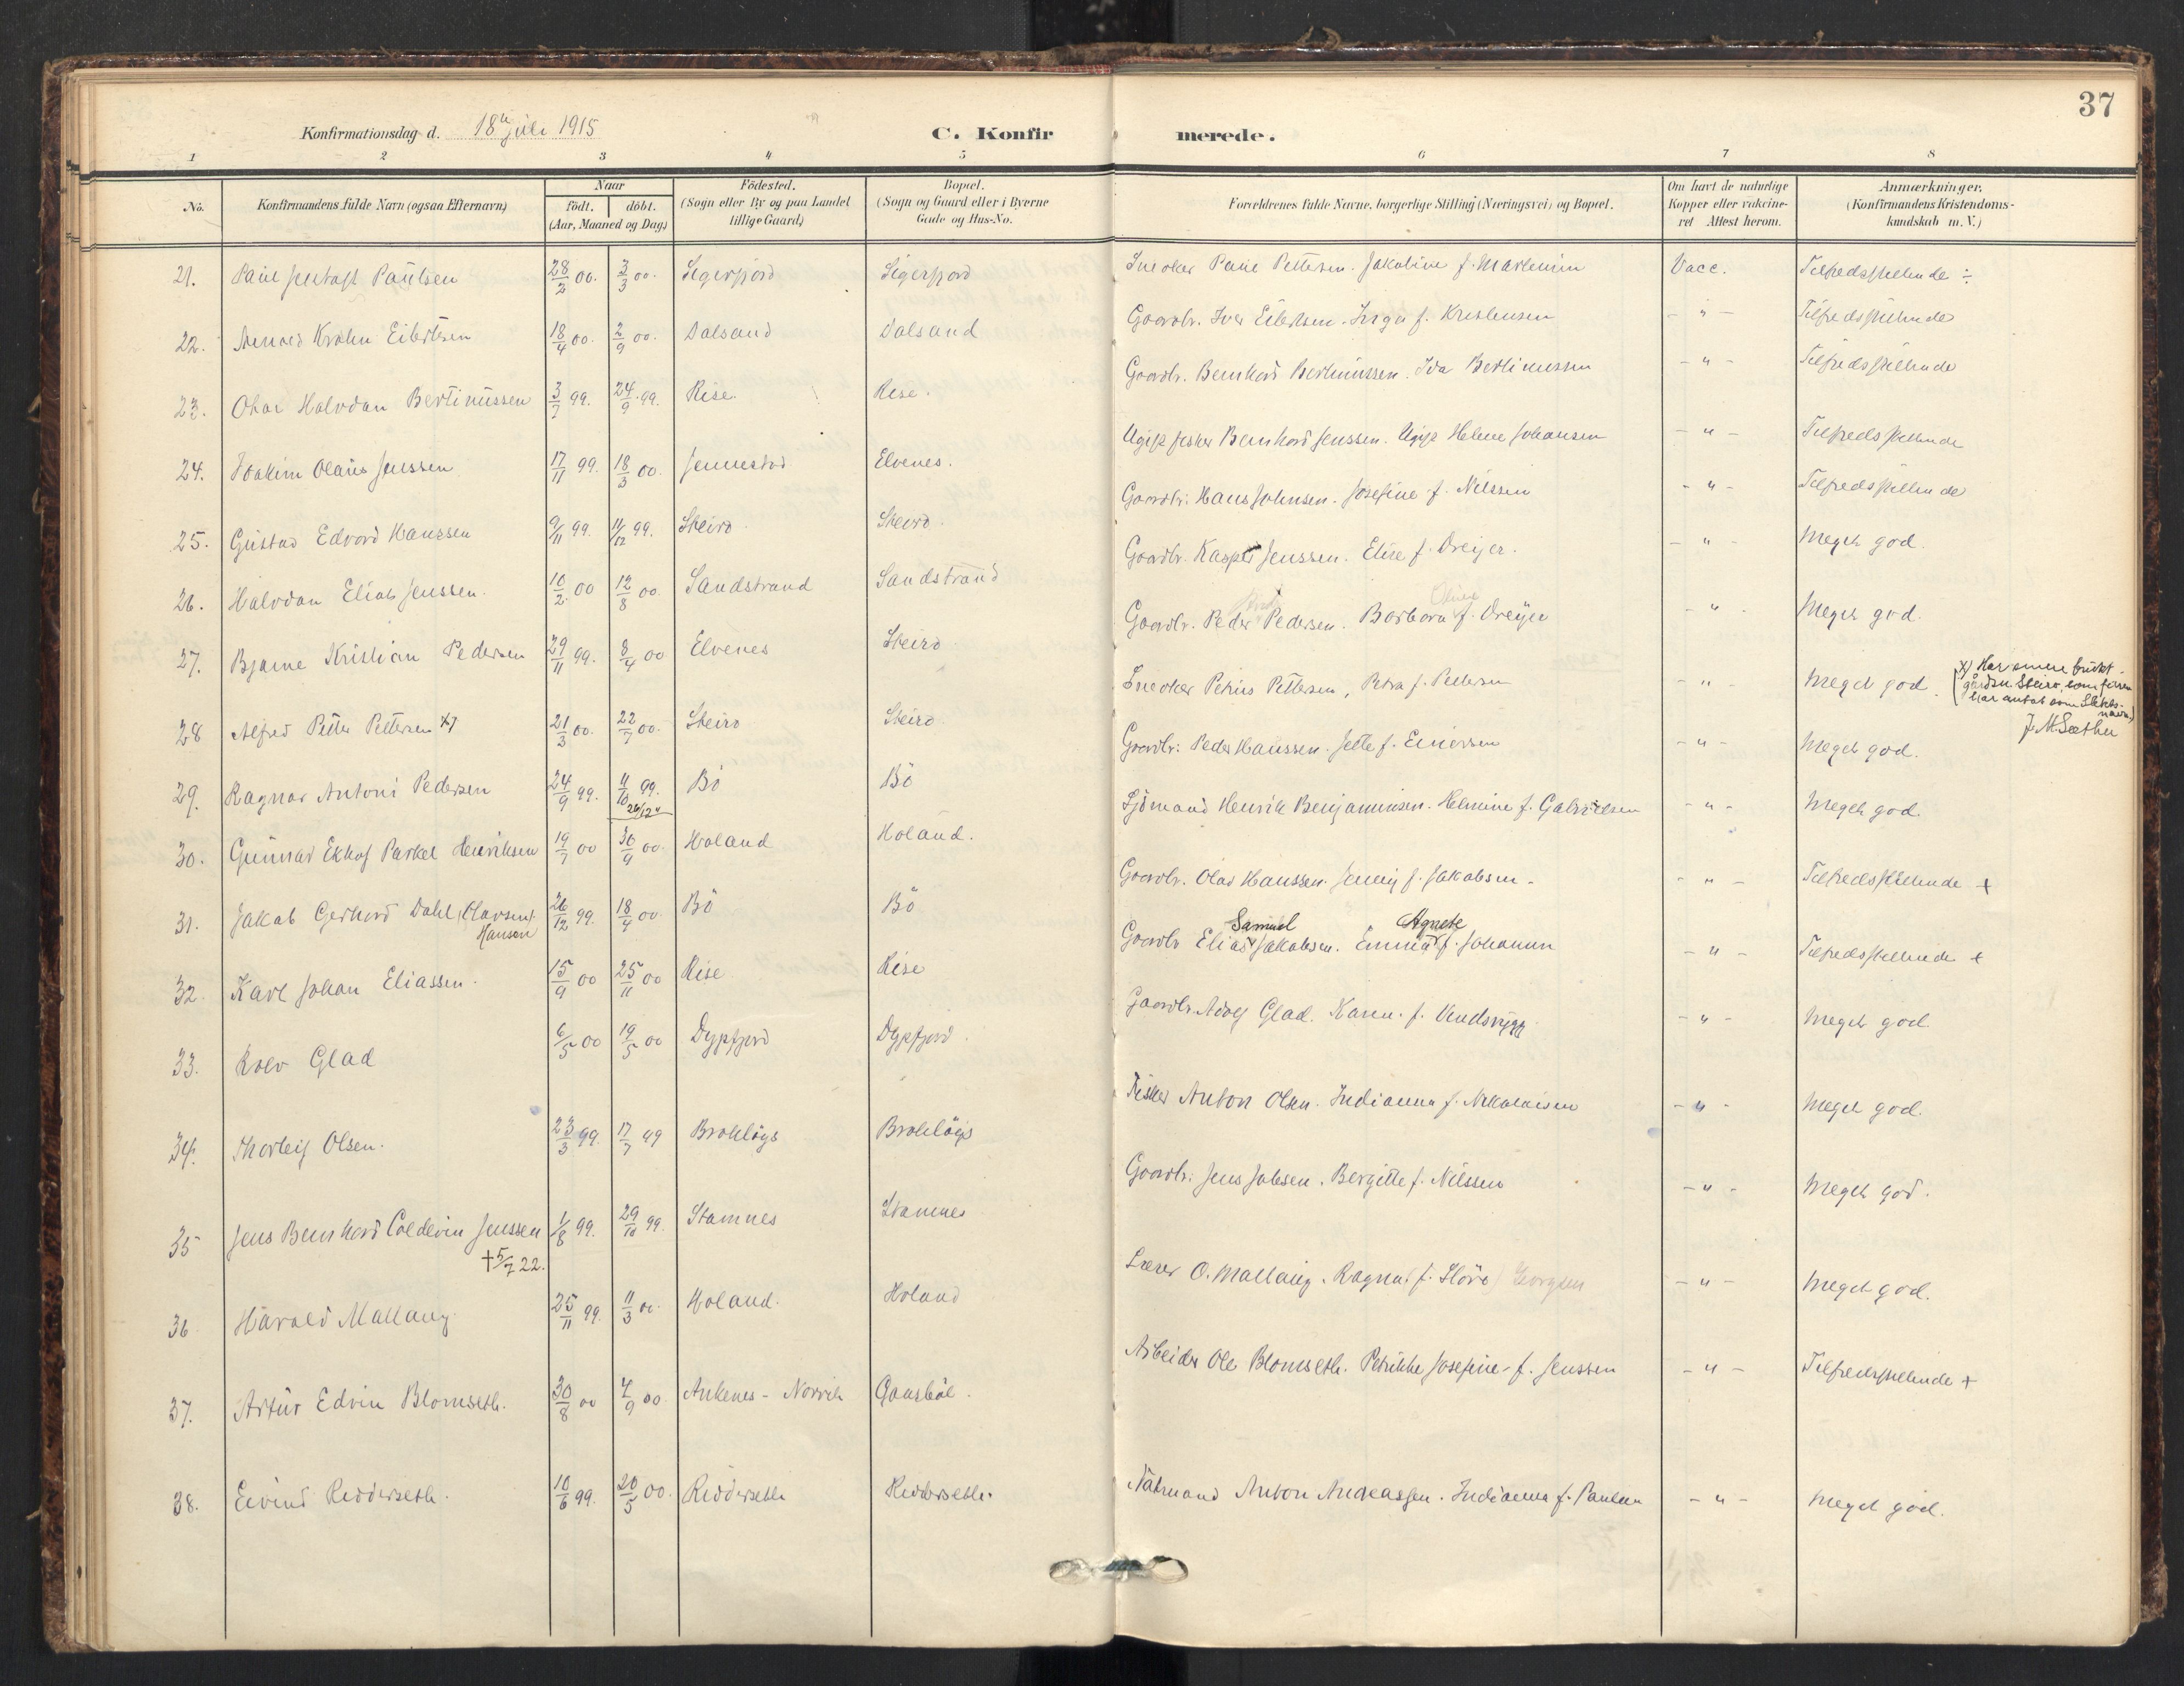 37
Konfirmationsdag d. 18de juli 1915
C. Konfirmerede.
1 2 3 4 5 6 7 8
No.
Konfirmandens fulde Navn (ogsaa Efternavn)
Naar
födt. döbt.
(Aar, Maaned og Dag)
Födested.
(Sogn eller By og paa Landet
tillige Gaard)
Bopæl.
(Sogn og Gaard eller i Byerne
Gade og Hus-No.
Forældrenes fulde Navne, borgerlige Stilling (Næringsvei) og Bopæl.
Om havt de naturlige
Kopper eller vakcine-
ret Attest herom.
Anmærkninger.
(Konfirmandens Kristendoms-
kundskab m. V.)
21. Paul Paulsen 28/2 00. 3/3 00. Sigerfjord Sigerfjord Snedker Paul Pettersen. Jakobine f. Vacc. Tilfredsstillende ÷
22. Krohn Eilertsen 18/4 00. 2/9 00. Dalsand Dalsand Gaardbr. Iver Eilertsen. Inga f. Kristensen - " - Tilfredsstillende
23. Halvdan Bertinussen 3/7 99. 24/9 99. Rise. Rise. Gaardbr. Bernhard Bertinussen. Ida Bertinussen - " - Tilfredsstillende
24. Joakim Olaus Jenssen 17/11 99. 18/3 00. Jennestad Elvenes. Ugift fisker Bernhard Jenssen. Ugift Helene Johansen - " - Tilfredsstillende
25. Gustav Edvard Hanssen 9/11 99. 11/12 99. Steiro Steiro. Gaardbr. Hans Johnsen. Josefine f. Nilssen - " - Tilfredsstillende
26. Halvdan Elias Jenssen. 10/2 00 12/8 00. Sandstrand Sandstrand Gaardbr. Kasper Jenssen. Elise f. Dreijer. - " - Meget god.
27. Bjarne Kristian Pedersen 29/11 99. 8/4 00 Elvenes Steiro Gaardbr. Peder Pedersen. Barbara f. Dreyer - " - Meget god.
28 Alfred Petter Pettersen x) 21/3 00. 22/7 00. Steiro Steiro Snedker Petrus Pettersen, Petra f. Pettersen - " - Meget god.
J. M. Sæther
29. Ragnar Antoni Pedersen 24/9 99. 11/10 99. 26/12 " Bö Bö Gaardbr. Peder Hanssen. Jette f. - " - Meget god.
30. Gunnar Henriksen 19/7 00 30/9 00. Holand Holand. Sjömand Henrik Benjaminsen. Helmine f. Gabrielsen - " - Meget god.
31. Jakob Gerhard Dahl (Olavsen) 26/12 99. 18/4 00. Bö Bö Gaardbr. Olav Hanssen. Jenny f. Jakobsen. - " - Tilfredsstillende +
Hansen
32. Karl Johan Eliassen. 15/9 00 25/11 00 Rise Rise Gaardbr Elias Samuel Jakobsen. Emma Agnete f. Johansen - " - Tilfredsstillende +
33. Rolv Glad 6/5 00 19/5 00 Dypfjord Dypfjord. Gaardbr. Adolf Glad. Karen. f. - " - Meget god
34. Thorleif Olsen. 23/3 99. 17/7 99 Brokløys Brokløys Fisker Anton Olsen. Indianna f. Nikolaisen - " - Meget god.
35 Jens Bernhard Coldevin Jenssen 1/8 99. 29/10 99. Stamnes Stamnes Gaardbr. Jens Jensen. Bergitte f. Nilssen - " - Meget god.
† 5/7 22.
36. Harald Mallaug. 25/11 99. 11/3 00. Holand. Holand Lærer O. Mallaug. Ragna (f. Georgsen - " - Meget god.
37. Artur Edvin Blomseth. 30/8 00 4/9 00. Ankenes - Narvik Gansbøl. Arbeider Ole Blomseth. Petrikke Josefine f. Jenssen - " - Tilfredsstillende +
38. Eivind Riddersetth. 10/6 99. 20/5 00. Riddersetth Riddersetth. Anton Andreassen. Indianna f. Paulsen - " - Meget god.